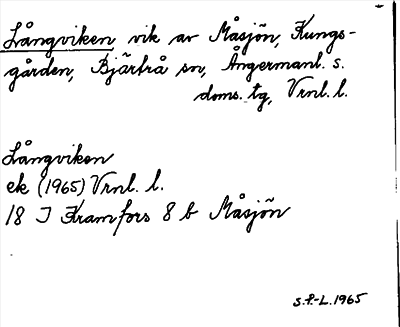 Långviken vik av Måsjön, Kungs-
gården, Bjärtrå sn, Ångermanl. s.
doms. tg, Vrnl. l.
Långviken
ek (1965) Vrnl. l.
18 I Kramfors 8 b Måsjön
S.P.-L. 1965